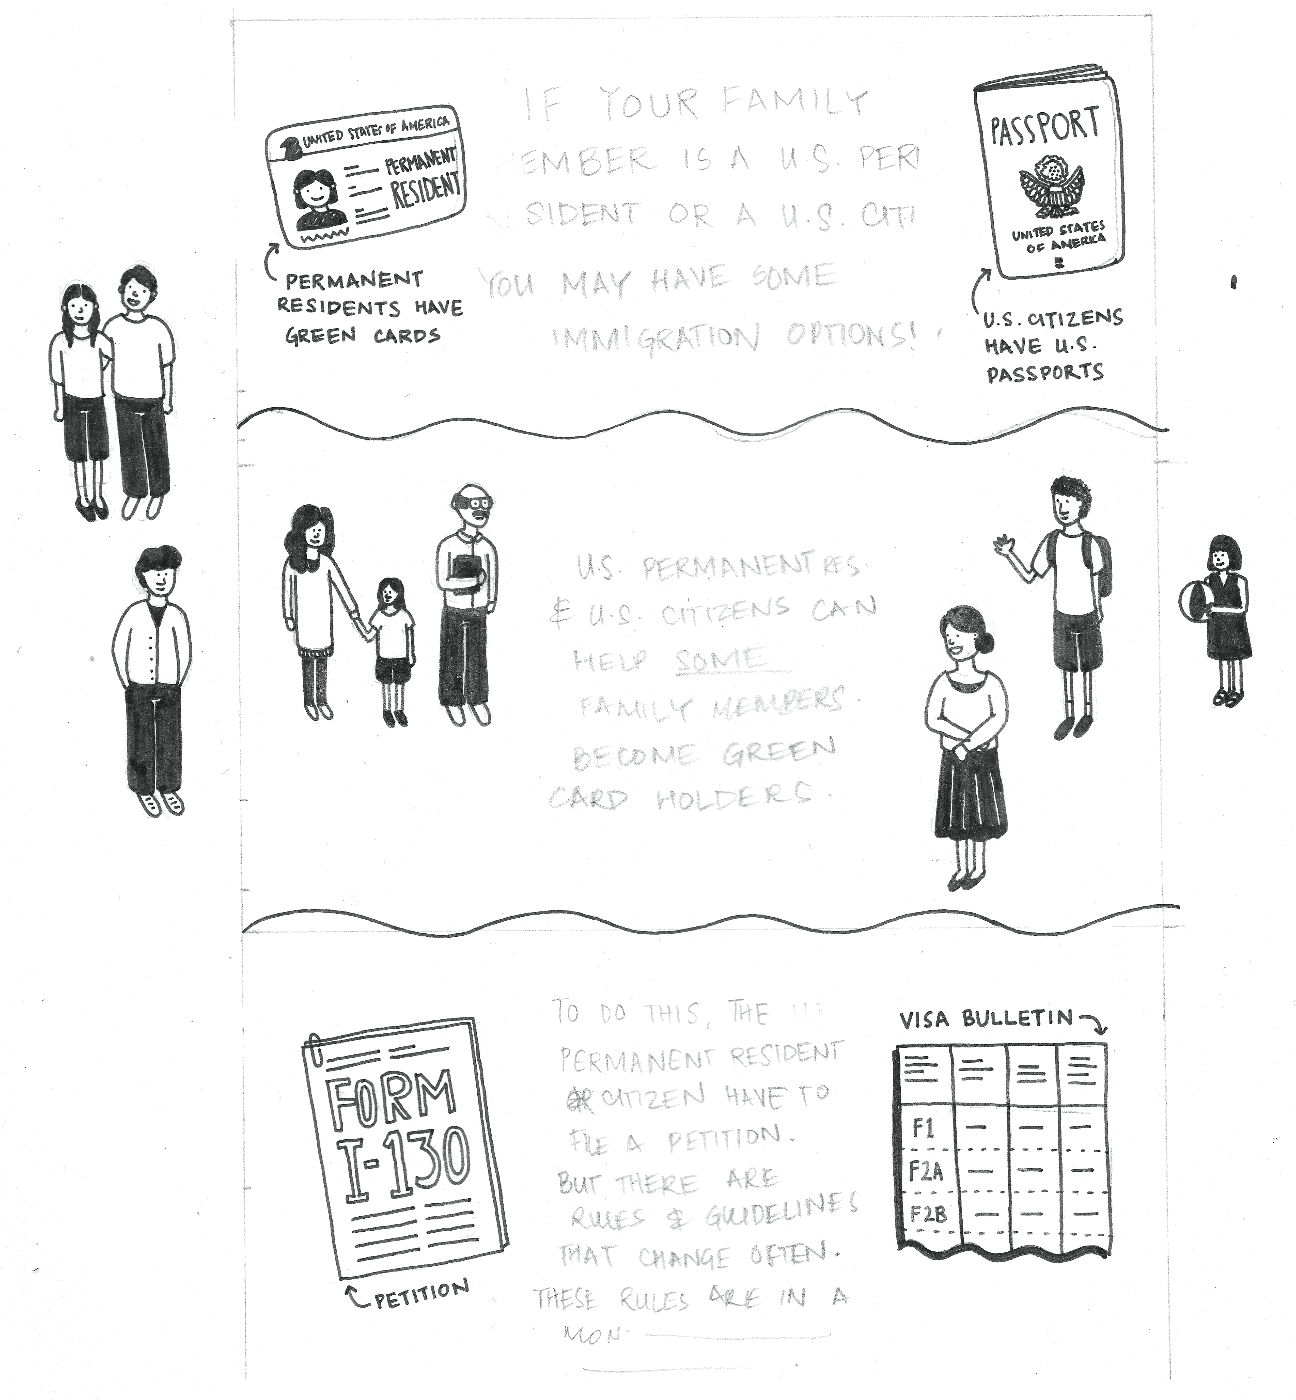 IF YOUR FAMILY
EMBER IS A U.S. PER
SIDENT OR A U.S. CITI
YOU MAY HAVE SOME
IMMIGRATION OPTIONS!
UNITED STATES OF AMERICA
PERMANENT
RESIDENT
PERMANENT
RESIDENTS HAVE
GREEN CARDS
PASSPORT
UNITED STATES
OF AMERICA
U.S. CITIZENS
HAVE U.S.
PASSPORTS
U.S. PERMANENT RES.
& U.S. CITIZENS CAN
HELP SOME
FAMILY MEMBERS.
BECOME GREEN
CARD HOLDERS.
TO DO THIS, THE
PERMANENT RESIDENT
OR CITIZEN HAVE TO
FILE A PETITION.
BUT THERE ARE
RULES & GUIDELINES
THAT CHANGE OFTEN.
THESE RULES ARE IN A
MON
FORM
I-130
PETITION
VISA BULLETIN
F1
F2A
F2B